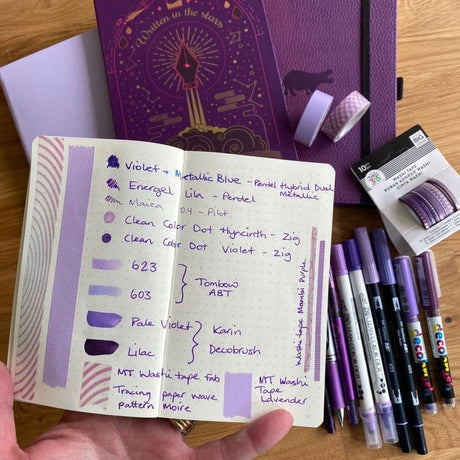 Written in the stars
Violet + Metallic Blue - Pentel Hybrid Dual Metallic
Energel Lila - Pentel
Maica 0.4 - Pilot
Clean Color Dot Hyacinth - Zig
Clean Color Dot Violet - Zig
623
603
Tombow
ABT
Pale Violet
Lilac
Karin
Decobrush
MT Washi tape Fab
Tracing paper wave
pattern Moire
MT Washi
Tape
Lavender
Washi tape Mambi Purple
WASHI TAPE